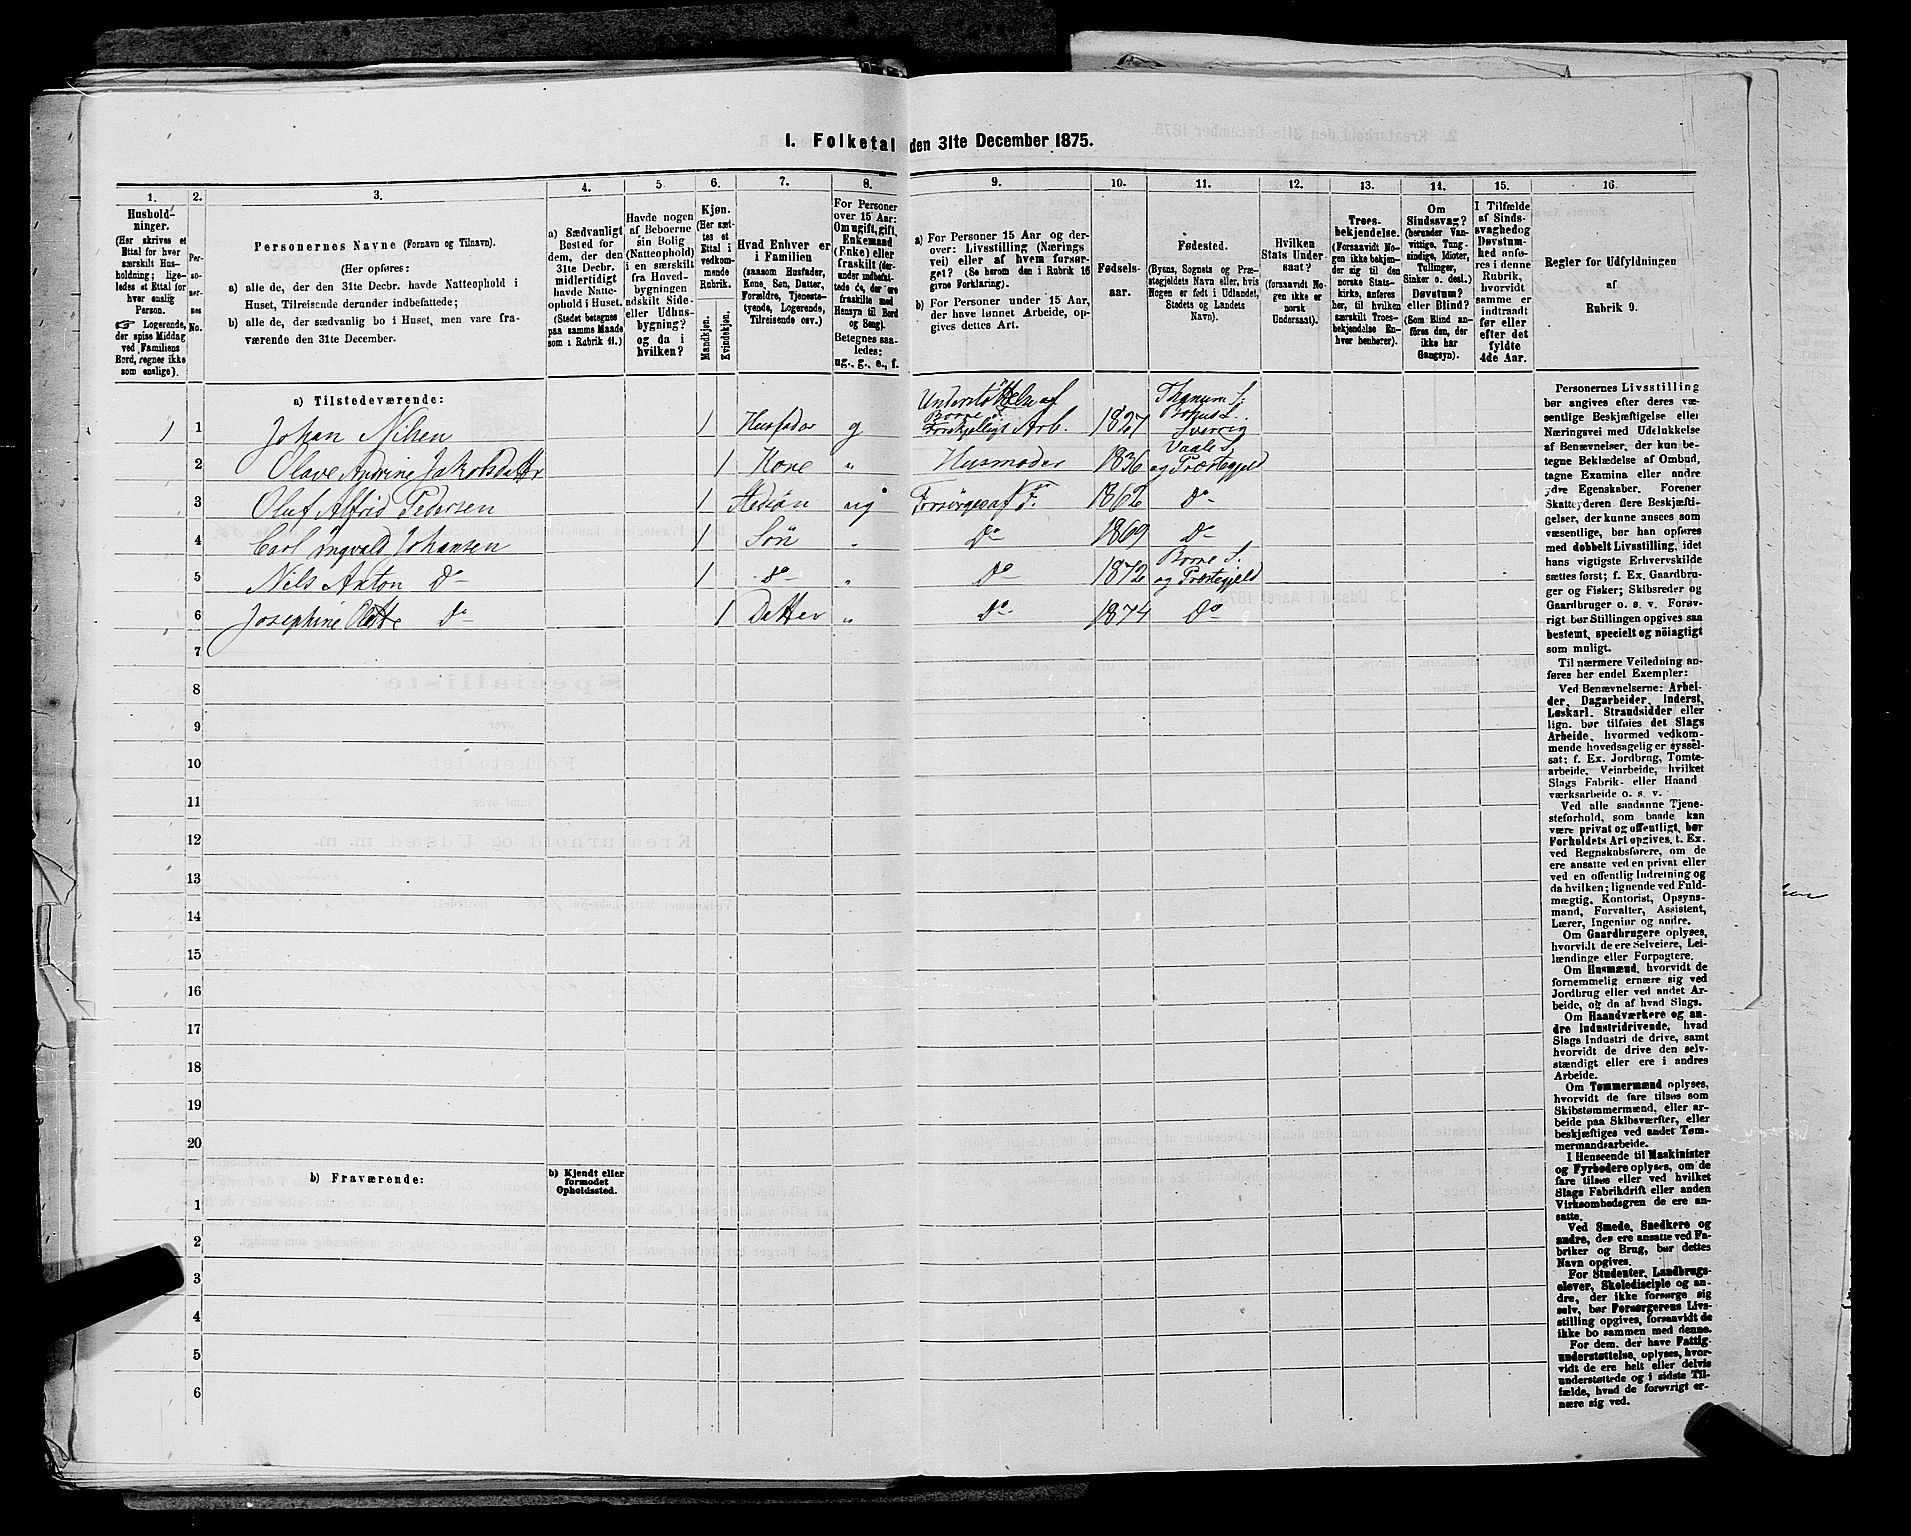 1. Folketal den 31te December 1875.
1. 2. 3. 4. 5. 6. 7. 8. 9. 10. 11. 12. 13. 14. 15. 16.
Hushold-
ninger.
(Her skrives et
Ettal for hver
særskilt Hus-
holdning; lige-
ledes et Ettal for
hver enslig
Person.
☞ Logerende,
der spise Middag
ved Familiens
Bord, regnes ikke
som enslige).
Per-
so-
ner-
nes
No.
Personernes Navne (Fornavn og Tilnavn).
(Her opføres:
a) alle de, der den 31te Decbr. havde Natteophold i
Huset, Tilreisende derunder indbefattede;
b) alle de, der sædvanlig bo i Huset, men vare fra-
værende den 31te December.
a) Sædvanligt
Bosted for
dem, der den
31te Decbr.
midlertidigt
havde Natte-
ophold i Huset.
(Stedet betegnes
paa samme Maade
som i Rubrik 11.)
Havde nogen
af Beboerne
sin Bolig
(Natteophold)
i en særskilt
fra Hoved-
bygningen
adskilt Side-
eller Udhus-
bygning?
og da i
hvilken?
Kjøn.
(Her sæt-
tes et
Ettal i
vedkom-
mende
Rubrik.
Mandkjøn.
Kvindekjøn.
Hvad Enhver er
i Familien
(saasom Husfader,
Kone, Søn, Datter,
Forældre, Tjeneste-
tyende, Logerende,
Tilreisende osv.)
For Personer
over 15 Aar:
Om ugift, gift,
Enkemand
(Enke) eller
fraskilt (der-
under indbefat-
tede de, der ere
fraskilte med
Hensyn til Bord
og Seng).
Betegnes saa-
ledes:
ug., g., e., f.
a) For Personer 15 Aar og der-
over: Livsstilling (Nærings
vei) eller af hvem forsør-
get? (Se herom den i Rubrik 16
givne Forklaring).
b) For Personer under 15 Aar,
der have lønnet Arbeide, op-
gives dettes Art.
Fødsels-
aar.
Fødested.
(Byens, Sognets og Præ-
stegjeldets Navn eller, hvis
Nogen er født i Udlandet,
Stedets og Landets
Navn).
Hvilken
Stats Under-
saat?
(forsaavidt No-
gen ikke er
norsk
Undersaat).
Troes-
bekjendelse.
(Forsaavidt No-
gen ikke bekjen-
der sig til den
norske Stats-
kirke, anføres
her, til hvilken
særskilt Troes-
bekjendelse En-
hver henhører).
Om
Sindssvag?
(herunder Van-
vittige, Tung-
sindige, Idioter,
Tullinger,
Sinker o. desl.)
Døvstum?
eller Blind?
(Som Blind an-
føres den, der
ikke har
Gangsyn).
I Tilfælde
af Sinds-
svaghed og
Døvstum-
hed anfø-
res i denne
Rubrik,
hvorvidt
samme er
indtraadt
før eller
efter det
fyldte
4de Aar.
Regler for Udfyldningen
af
Rubrik 9.
a) Tilstedeværende:
1 1 Johan Nilsen 1 Husfader g Understøttelse af Borre og Forskjelligt Arb. 1827 Thanum S. Bohus L. Sverrig
2 Olave Andrine Jakobsdatter 1 Kone „ Husmoder 1836 Vaale S. og Præstegjeld
3 Oluf Alfrid Pedersen 1 Stedsøn ug Forsørges af F. 1862 Do
4 Carl Ingvald Johansen 1 Søn „ Do 1869 Do
5 Nils Anton Do 1 do „ Do 1872 Borre S. og Præstegjeld
6 Josephine Olette Do 1 Datter „ Do 1874 Do
7
8
9
10
11
12
13
14
15
16
17
18
19
20
b) Fraværende:
b) Kjendt eller
formodet
Opholdssted.
1
2
3
4
5
6
Personernes Livsstilling
bør angives efter deres væ-
sentlige Beskjæftigelse eller
Næringsvei med Udelukkelse
af Benævnelser, der kun be-
tegne Beklædelse af Ombud,
tagne Examina eller andre
ydre Egenskaber. Forener
Skatteyderen flere Beskjæfti-
gelser, der kunne ansees som
væsentlige, bør han opføres
med dobbelt Livsstilling, idet
hans vigtigste Erhvervskilde
sættes først; f. Ex. Gaardbru-
ger og Fisker; Skibsreder og
Gaardbruger o. s. v. Forøv-
rigt bør Stillingen opgives saa
bestemt, specielt og nöiagtigt
som muligt.
Til nærmere Veiledning an-
føres her endel Exempler:
Ved Benævnelserne: Arbei-
der, Dagarbeider, Inderst,
Løskarl, Strandsidder eller
lign. bør tilføies det Slags
Arbeide, hvormed vedkom-
mende hovedsagelig er syssel-
sat; f. Ex. Jordbrug, Tomte-
arbeide, Veiarbeide, hvilket
Slags Fabrik- eller Haand
værksarbeide o. s. v.
Ved alle saadanne Tjene-
steforhold, som baade kan
være privat og offentligt, bør
Forholdets Art opgives, t. Ex.
ved Regnskabsførere, om de
ere ansatte ved en privat eller
ved en offentlig Indretning og
da hvilken; lignende ved Fuld-
mægtig, Kontorist, Opsyns-
mand, Forvalter, Assistent,
Lærer, Ingeniør og andre.
Om Gaardbrugere oplyses,
hvorvidt de ere Selveiere, Lei-
lændinge eller Forpagtere.
Om Husmænd, hvorvidt de
fornemmelig ernære sig ved
Jordbrug eller ved andet Ar-
beide, og da af hvad Slags.
Om Haandværkere og an-
dre Industridrivende, hvad
Slags Industri de drive, samt
hvorvidt de drive den selv-
stændigt eller ere i andres
Arbeide.
Om Tømmermænd oplyses,
hvorvidt de fare tilsøs som
Skibstømmermænd, eller ar-
beide paa Skibsværfter, eller
beskjæftiges ved andet Tøm-
mermandsarbeide.
I Henseende til Maskinister
og Fyrbødere oplyses, om de
fare tilsøs eller ved hvilket
Slags Fabrikdrift eller anden
Virksombedsgren de ere an-
satte.
Ved Smede, Snedkere og
andre, der ere ansatte ved Fa-
briker og Brug, bør dettes
Navn opgives.
For Studenter, Landbrugs-
elever, Skoledisciple og an-
dre, der ikke forsørge sig
selv, bør Forsørgerens Livs-
stilling opgives, forsaavidt de
ikke bo sammen med denne.
For dem, der have Fattig-
understøttelse, oplyses, hvor-
vidt de ere helt eller delvis
understøttede og i sidste Til-
fælde, hvad de forøvrigt er-
nære sig ved.